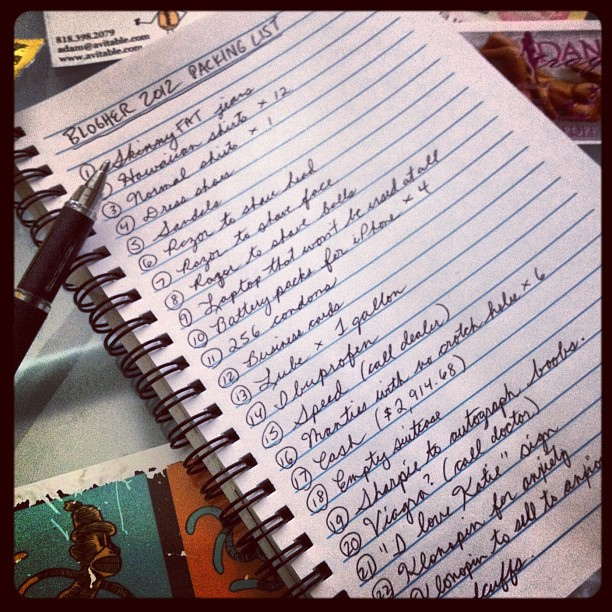 818.398.2079
adam@avitable.com
www.avitable.com
DAN
BLOGHER 2012 PACKING LIST
① Skinny FAT jeans
Hawaiian shirts x 12
③ Normal shirts x 1
④ Dress shoes
⑤ Sandals
⑥ Razor to shave head
⑦ Razor to shave face
⑧ Razor to shave balls
⑨ Laptop that won't be used at all
⑩ Battery packs for iPhone x 4
⑪ 256 condoms
⑫ Business cards
⑬ Lube x 1 gallon
⑭ Ibuprofen
⑮ Speed (call dealer)
⑯ Manties with no crotch holes x 6
⑰ Cash ($2,914.68)
⑱ Empty suitcase
⑲ Sharpie to autograph boobs.
⑳ Viagra? (call doctor)
㉑ "I love Katie" sign
㉒ Klonopin for anxiety
Klonopin to sell to